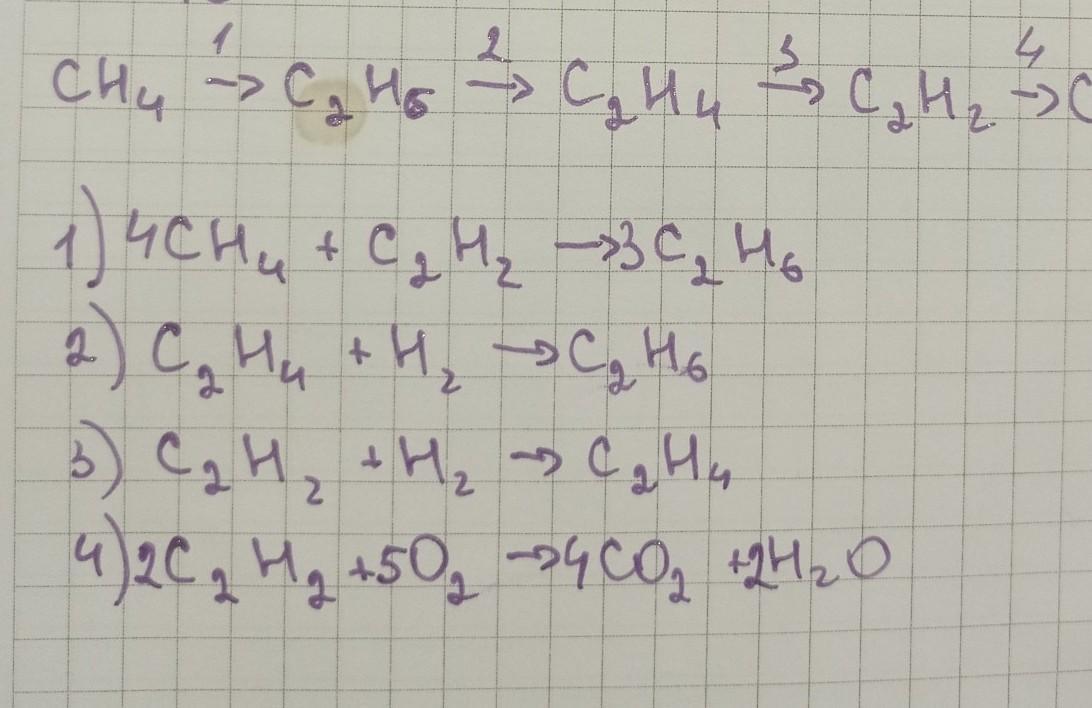 CH₄ →¹ C₂H₆ →² C₂H₄ →³ C₂H₂ →⁴ C
1) 4CH₄ + C₂H₂ → 3C₂H₆
2) C₂H₄ + H₂ → C₂H₆
3) C₂H₂ + H₂ → C₂H₄
4) 2C₂H₂ + 5O₂ → 4CO₂ + 2H₂O